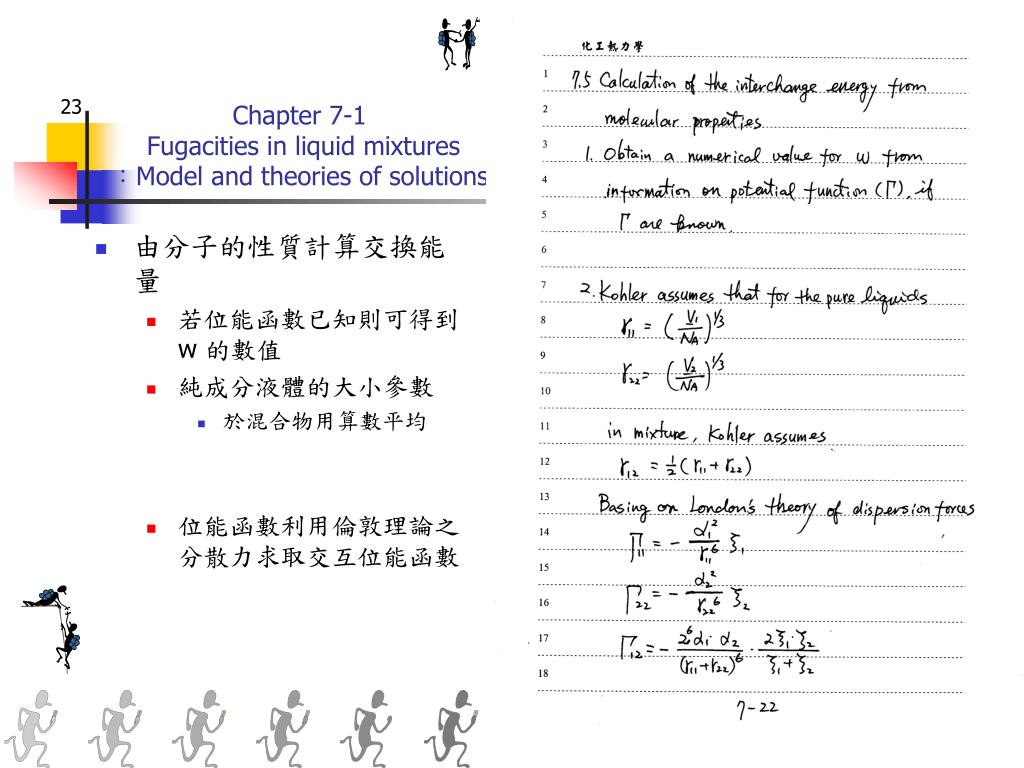 23
Chapter 7-1
Fugacities in liquid mixtures
: Model and theories of solutions
由分子的性質計算交換能
量
若位能函數已知則可得到
w 的數值
純成分液體的大小參數
於混合物用算數平均
位能函數利用倫敦理論之
分散力求取交互位能函數
化工熱力學
1 7.5 Calculation of the interchange energy from
2 molecular properties
3 1. Obtain a numerical value for w from
4 information on potential function (Γ), if
5 Γ are known.
6
7 2. Kohler assumes that for the pure liquids
8 r₁₁ = (V₁/N_A)^1/3
9 r₂₂ = (V₂/N_A)^1/3
10
11 in mixture, Kohler assumes
12 r₁₂ = ½(r₁₁ + r₂₂)
13 Basing on London's theory of dispersion forces
14 Γ₁₁ = - α₁²/r₁₁⁶ ξ₁
15
16 Γ₂₂ = - α₂²/r₂₂⁶ ξ₂
17 Γ₁₂ = - 2⁶α₁·α₂/(r₁₁+r₂₂)⁶ · 2ξ₁·ξ₂/ξ₁+ξ₂
18
7-22